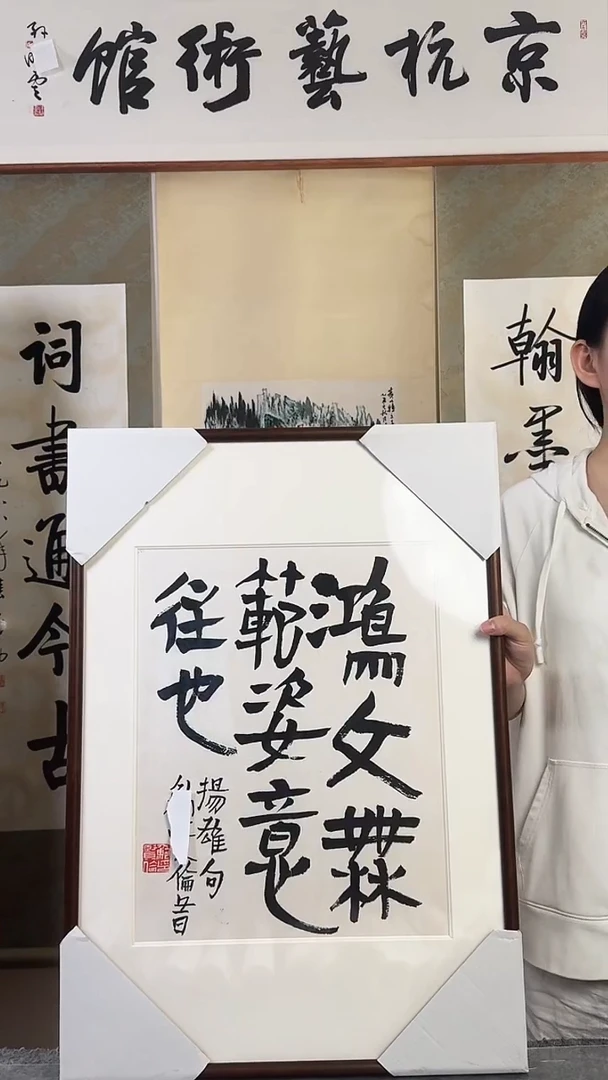 京杭藝術館
翰墨
詞書通今古
鴻文橆
範姿意
往也
揚雄句
倫書